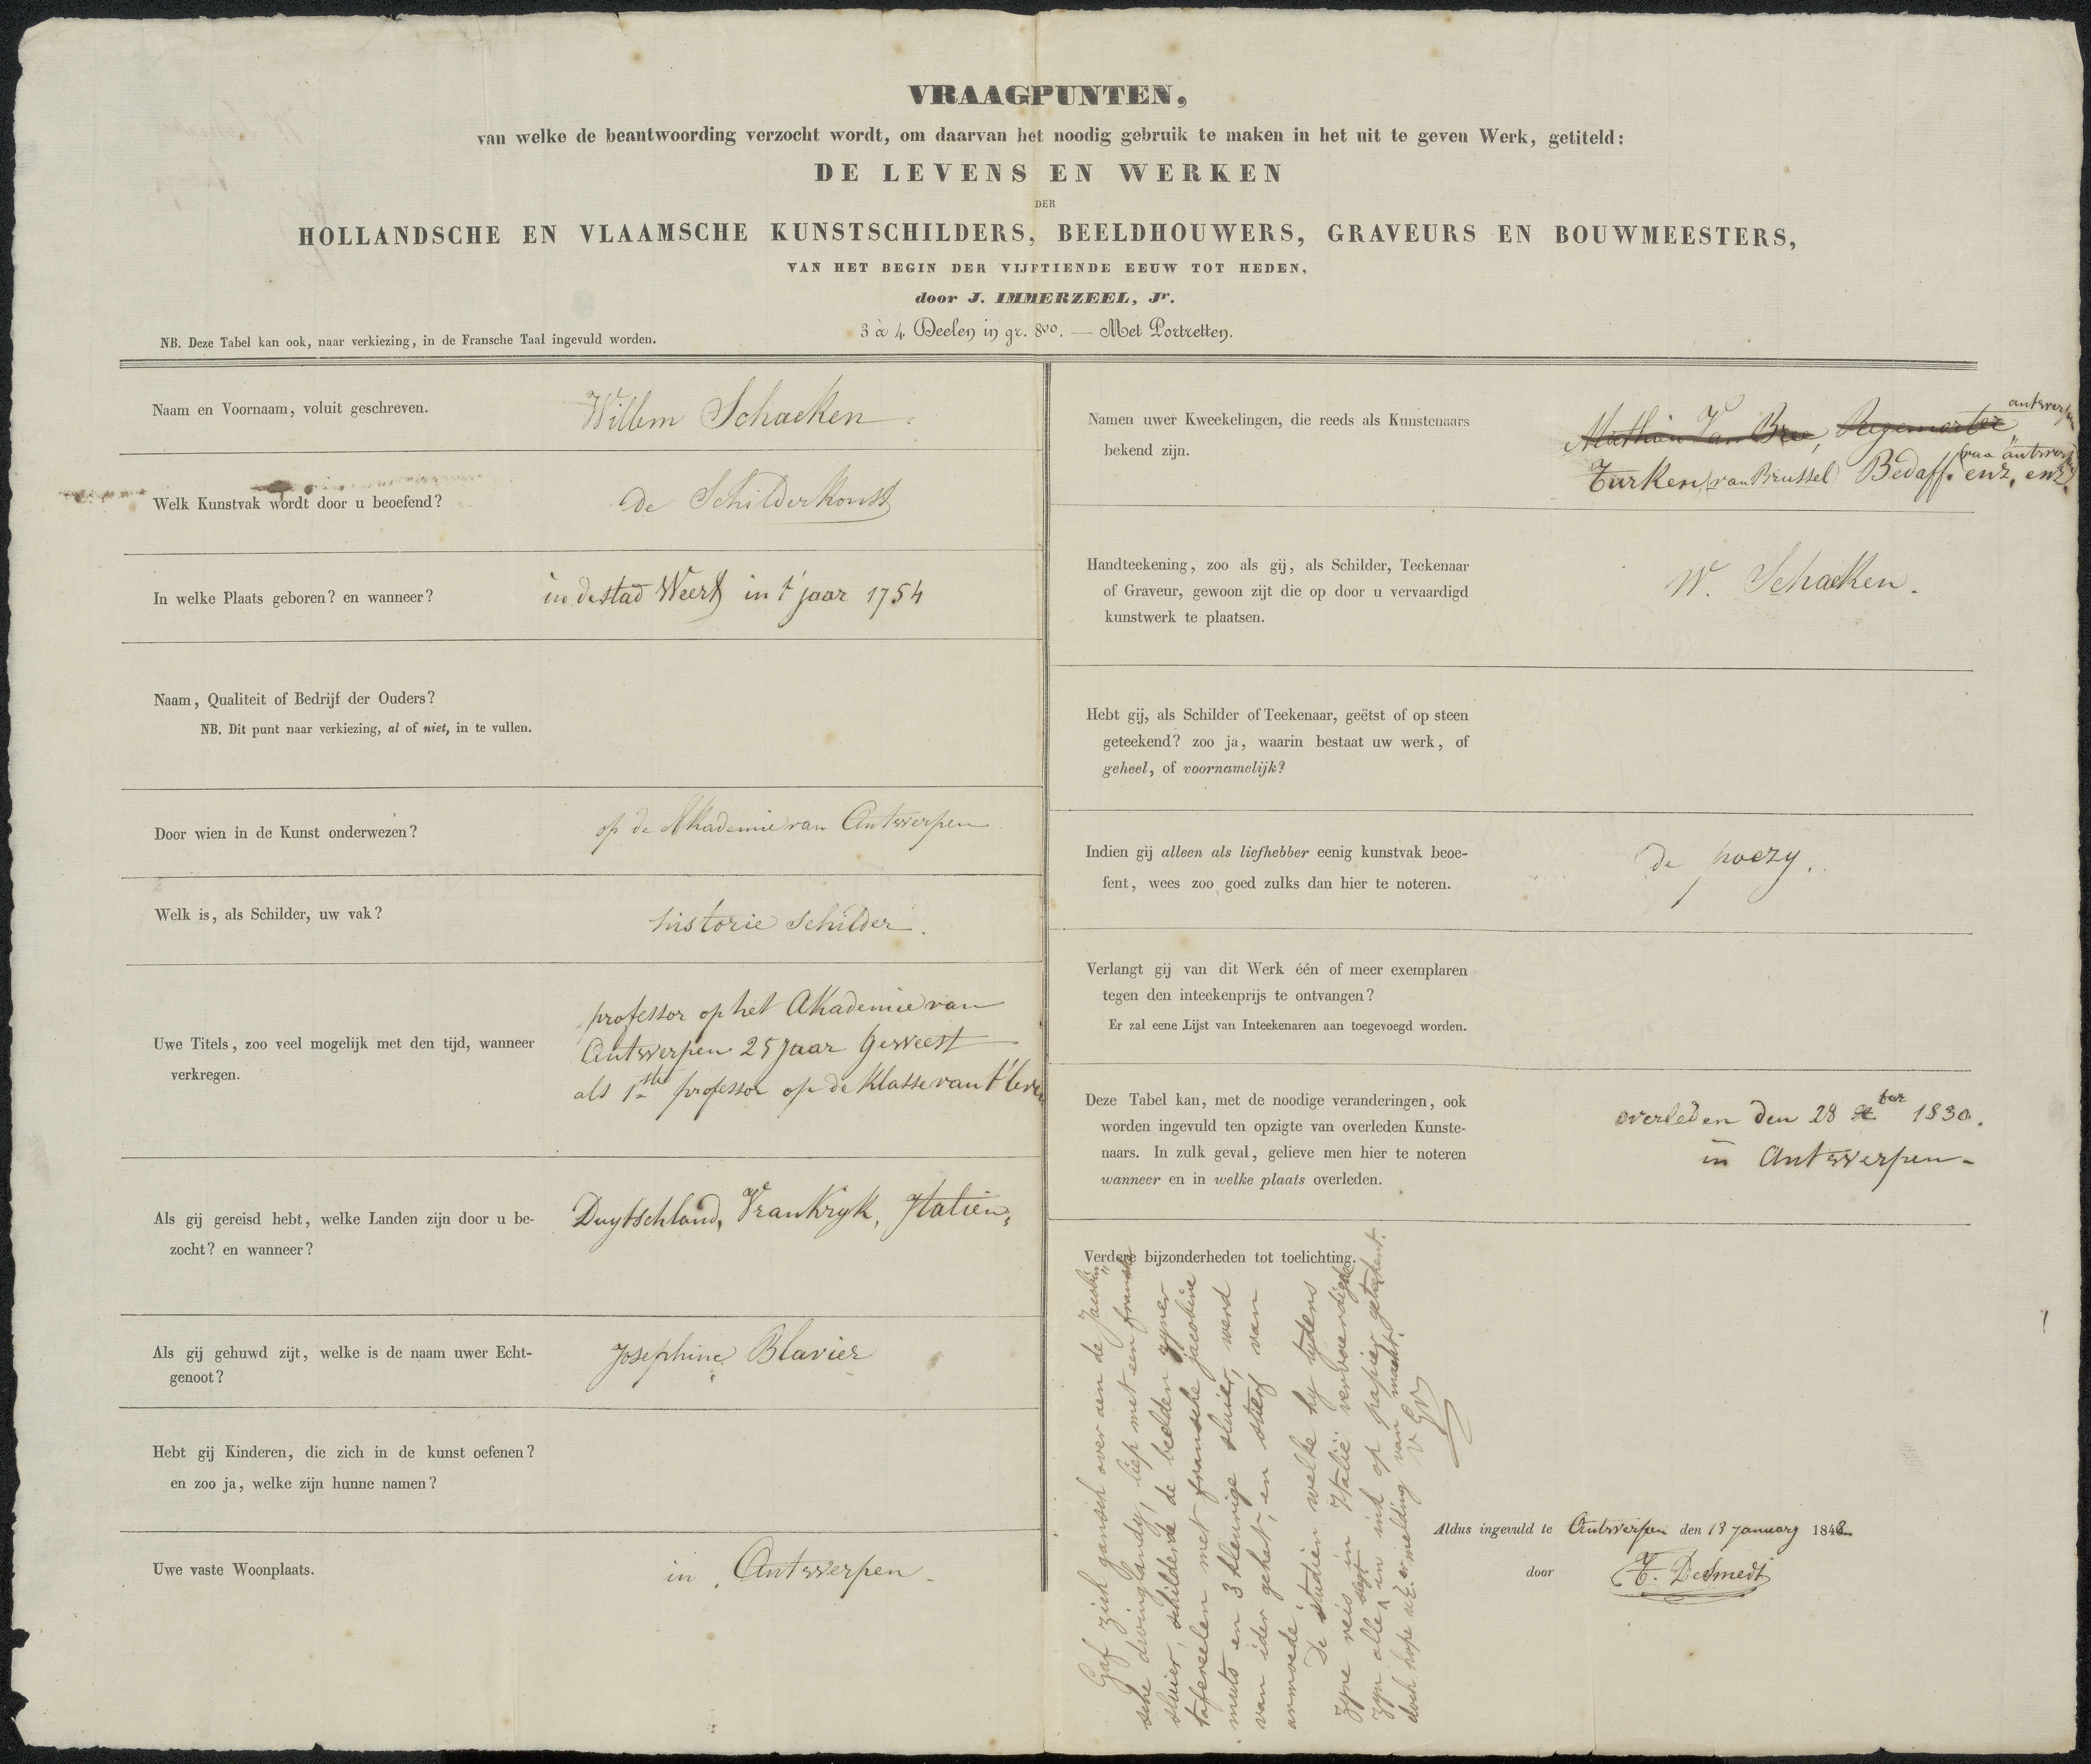 VRAAGPUNTEN,
van welke de beantwoording verzocht wordt, om daarvan het noodig gebruik te maken in het uit te geven Werk, getiteld:
DE LEVENS EN WERKEN
DER
HOLLANDSCHE EN VLAAMSCHE KUNSTSCHILDERS, BEELDHOUWERS, GRAVEURS EN BOUWMEESTERS,
VAN HET BEGIN DER VIJFTIENDE EEUW TOT HEDEN,
door J. IMMERZEEL, Jr.
3 à 4 Deelen in gr. 8vo. — Met Portretten.
NB. Deze Tabel kan ook, naar verkiezing, in de Fransche Taal ingevuld worden.
Naam en Voornaam, voluit geschreven.
Willem Schaeken
Welk Kunstvak wordt door u beoefend?
de Schilderkonst
In welke Plaats geboren? en wanneer?
in de stad Weert in t' jaar 1754
Naam, Qualiteit of Bedrijf der Ouders?
NB. Dit punt naar verkiezing, al of niet, in te vullen.
Door wien in de Kunst onderwezen?
op de Akademie van Antwerpen
Welk is, als Schilder, uw vak?
historie schilder.
Uwe Titels, zoo veel mogelijk met den tijd, wanneer
verkregen.
professor op het Akademie van
Antwerpen 25 Jaar Geweest
als 1ste professor op de Klasse van t' leven
Als gij gereisd hebt, welke Landen zijn door u be-
zocht? en wanneer?
Duytschland, Vrankryk, Italien,
Als gij gehuwd zijt, welke is de naam uwer Echt-
genoot?
Josephine Blavier
Hebt gij Kinderen, die zich in de kunst oefenen?
en zoo ja, welke zijn hunne namen?
Uwe vaste Woonplaats.
in Antwerpen.
Namen uwer Kweekelingen, die reeds als Kunstenaars
bekend zijn.
Mathieu Van Bree, Regemorter
antwerpen
Turken (van Brussel) Bedaff. enz, enz.
van antwerpen
Handteekening, zoo als gij, als Schilder, Teekenaar
of Graveur, gewoon zijt die op door u vervaardigd
kunstwerk te plaatsen.
W. Schaeken.
Hebt gij, als Schilder of Teekenaar, geëtst of op steen
geteekend? zoo ja, waarin bestaat uw werk, of
geheel, of voornamelijk?
Indien gij alleen als liefhebber eenig kunstvak beoe-
fent, wees zoo goed zulks dan hier te noteren.
de poezy.
Verlangt gij van dit Werk één of meer exemplaren
tegen den inteekenprijs te ontvangen?
Er zal eene Lijst van Inteekenaren aan toegevoegd worden.
Deze Tabel kan, met de noodige veranderingen, ook
worden ingevuld ten opzigte van overleden Kunste-
naars. In zulk geval, gelieve men hier te noteren
wanneer en in welke plaats overleden.
overleden den 28 ber 1830.
in Antwerpen-
Verdere bijzonderheden tot toelichting.
Gaf zich gansch over aen de Jacobin
sche dwinglandy, liep met een fransche
sluier, schilderde de beelden zyner
tafereelen met fransche jacobine
muts en 3 kleurige sluier, werd
van ider gehaet, en stierf van
armoede.
De studien welke hy tydens
zyne reis in Italië vervaerdigde
zyn alle in inkt op papier geteekent.
doch hope UE. er melding van maekt.
Aldus ingevuld te Antwerpen den 13 January 1842
door
T. DeSmedt